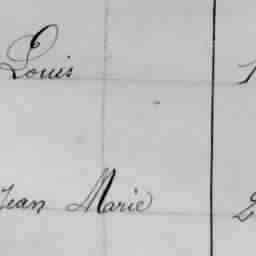 Louis
Jean Marie